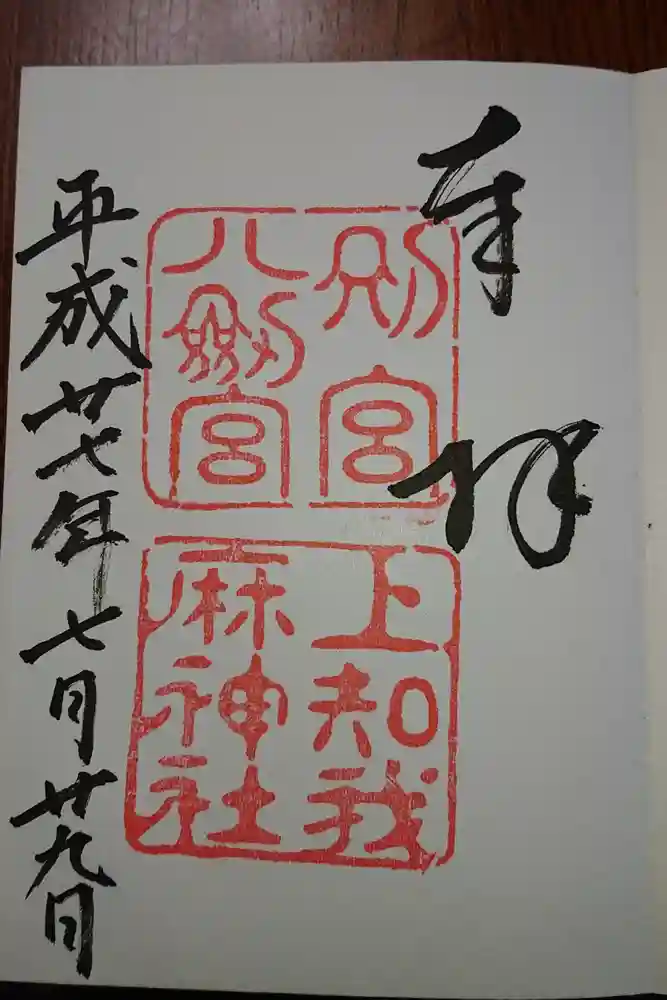 奉拝
別宮
八劔宮
上知我
麻神社
平成廿七年七月廿九日